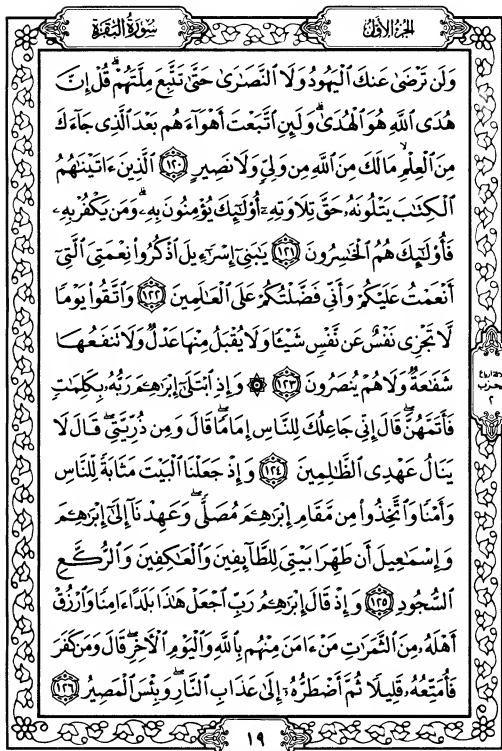 سُورَةُ البَقَرَة
الجزء الأول
وَلَن تَرْضَىٰ عَنكَ ٱلْيَهُودُ وَلَا ٱلنَّصَٰرَىٰ حَتَّىٰ تَتَّبِعَ مِلَّتَهُمْ ۗ قُلْ إِنَّ
هُدَى ٱللَّهِ هُوَ ٱلْهُدَىٰ ۗ وَلَئِنِ ٱتَّبَعْتَ أَهْوَآءَهُم بَعْدَ ٱلَّذِى جَآءَكَ
مِنَ ٱلْعِلْمِ ۙ مَا لَكَ مِنَ ٱللَّهِ مِن وَلِىٍّ وَلَا نَصِيرٍ ١٢٠ ٱلَّذِينَ ءَاتَيْنَٰهُمُ
ٱلْكِتَٰبَ يَتْلُونَهُۥ حَقَّ تِلَاوَتِهِۦٓ أُو۟لَٰٓئِكَ يُؤْمِنُونَ بِهِۦ ۗ وَمَن يَكْفُرْ بِهِۦ
فَأُو۟لَٰٓئِكَ هُمُ ٱلْخَٰسِرُونَ ١٢١ يَٰبَنِىٓ إِسْرَٰٓءِيلَ ٱذْكُرُوا۟ نِعْمَتِىَ ٱلَّتِىٓ
أَنْعَمْتُ عَلَيْكُمْ وَأَنِّى فَضَّلْتُكُمْ عَلَى ٱلْعَٰلَمِينَ ١٢٢ وَٱتَّقُوا۟ يَوْمًا
لَّا تَجْزِى نَفْسٌ عَن نَّفْسٍ شَيْـًٔا وَلَا يُقْبَلُ مِنْهَا عَدْلٌ وَلَا تَنفَعُهَا
شَفَٰعَةٌ وَلَا هُمْ يُنصَرُونَ ١٢٣ ۞ وَإِذِ ٱبْتَلَىٰٓ إِبْرَٰهِـۧمَ رَبُّهُۥ بِكَلِمَٰتٍ
فَأَتَمَّهُنَّ ۖ قَالَ إِنِّى جَاعِلُكَ لِلنَّاسِ إِمَامًا ۖ قَالَ وَمِن ذُرِّيَّتِى ۖ قَالَ لَا
يَنَالُ عَهْدِى ٱلظَّٰلِمِينَ ١٢٤ وَإِذْ جَعَلْنَا ٱلْبَيْتَ مَثَابَةً لِّلنَّاسِ
وَأَمْنًا وَٱتَّخِذُوا۟ مِن مَّقَامِ إِبْرَٰهِـۧمَ مُصَلًّى ۖ وَعَهِدْنَآ إِلَىٰٓ إِبْرَٰهِـۧمَ
وَإِسْمَٰعِيلَ أَن طَهِّرَا بَيْتِىَ لِلطَّآئِفِينَ وَٱلْعَٰكِفِينَ وَٱلرُّكَّعِ
ٱلسُّجُودِ ١٢٥ وَإِذْ قَالَ إِبْرَٰهِـۧمُ رَبِّ ٱجْعَلْ هَٰذَا بَلَدًا ءَامِنًا وَٱرْزُقْ
أَهْلَهُۥ مِنَ ٱلثَّمَرَٰتِ مَنْ ءَامَنَ مِنْهُم بِٱللَّهِ وَٱلْيَوْمِ ٱلْءَاخِرِ ۖ قَالَ وَمَن كَفَرَ
فَأُمَتِّعُهُۥ قَلِيلًا ثُمَّ أَضْطَرُّهُۥٓ إِلَىٰ عَذَابِ ٱلنَّارِ ۖ وَبِئْسَ ٱلْمَصِيرُ ١٢٦
١٩